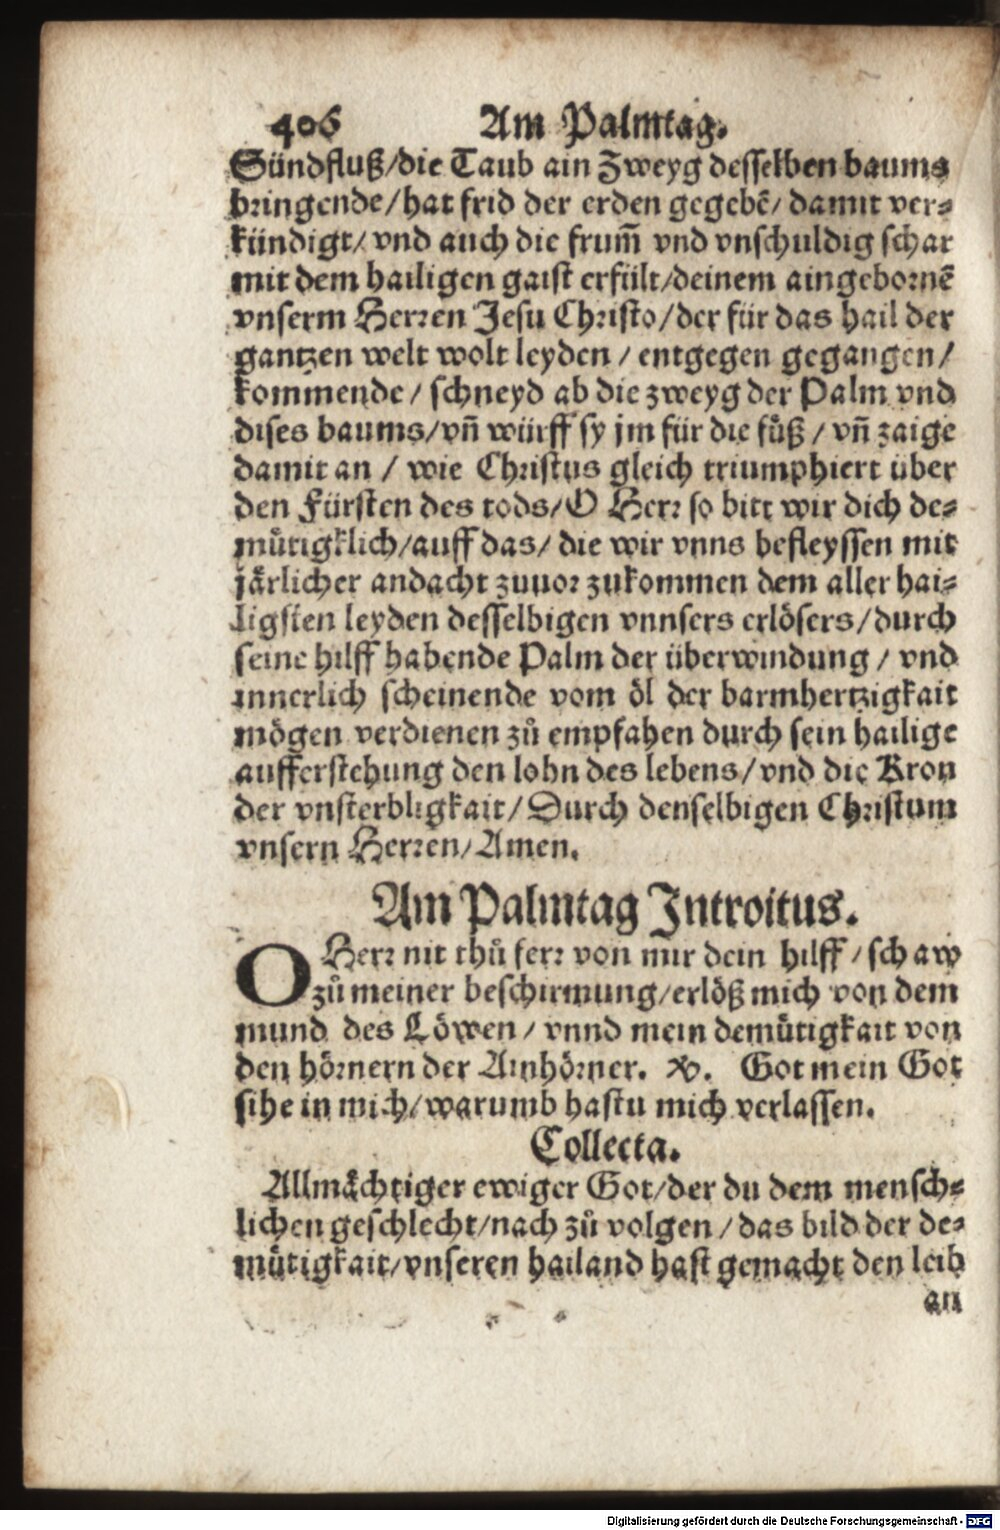 406 Am Palmtag.
Sündfluß/die Taub ain Zweyg desselben baums
bringende/hat frid der erden gegebē/ damit ver⸗
kündigt/ vnd auch die frum̄ vnd vnschuldig schar
mit dem hailigen gaist erfült/deinem aingebornē
vnserm Herren Jesu Christo/der für das hail der
gantzen welt wolt leyden / entgegen gegangen/
kommende/ schneyd ab die zweyg der Palm vnd
dises baums/vn̄ würff sy jm für die fuͤß / vn̄ zaige
damit an / wie Christus gleich triumphiert über
den Fürsten des tods/O Herr so bitt wir dich de⸗
muͤtigklich/auff das/ die wir vnns befleyssen mit
jaͤrlicher andacht zuuor zukommen dem aller hai⸗
ligsten leyden desselbigen vnnsers erlösers/durch
seine hilff habende Palm der überwindung / vnd
innerlich scheinende vom öl der barmhertzigkait
mögen verdienen zů empfahen durch sein hailige
aufferstehung den lohn des lebens/vnd die Kron
der vnsterbligkait/Durch denselbigen Christum
vnsern Herren/Amen.
Am Palmtag Introitus.
O Herr nit thů ferr von mir dein hilff / schaw
zů meiner beschirmung/erlöß mich von dem
mund des Löwen / vnnd mein demuͤtigkait von
den hörnern der Ainhörner. ℣. Got mein Got
sihe in mich/warumb hastu mich verlassen.
Collecta.
Allmaͤchtiger ewiger Got/der du dem mensch⸗
lichen geschlecht/nach zů volgen / das bild der de⸗
muͤtigkait/vnseren hailand hast gemacht den leib
an
Digitalisierung gefördert durch die Deutsche Forschungsgemeinschaft - DFG